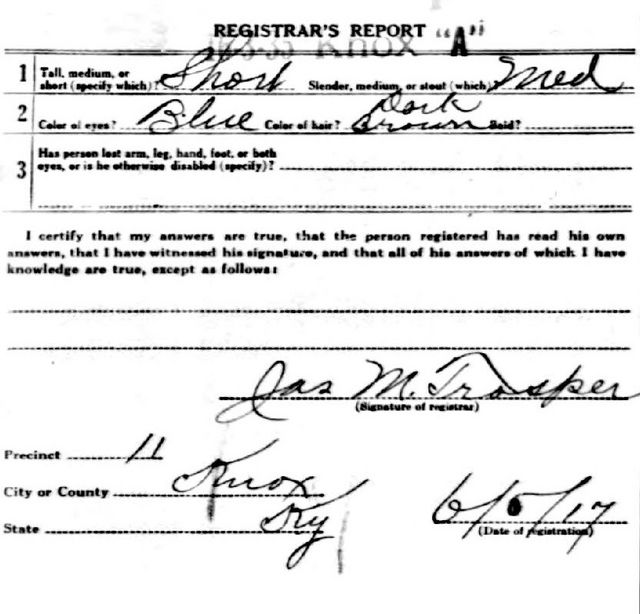 REGISTRAR'S REPORT "A"
Knox
1 Tall, medium, or short (specify which)? Short Slender, medium, or stout (which) Med
2 Color of eyes? Blue Color of hair? Dark Brown Bald?
3 Has person lost arm, leg, hand, foot, or both
eyes, or is he otherwise disabled (specify)?
I certify that my answers are true, that the person registered has read his own
answers, that I have witnessed his signature, and that all of his answers of which I have
knowledge are true, except as follows:
Jas M. Trosper
(Signature of registrar)
Precinct 11
City or County Knox
State Ky
6/5/17
(Date of registration)